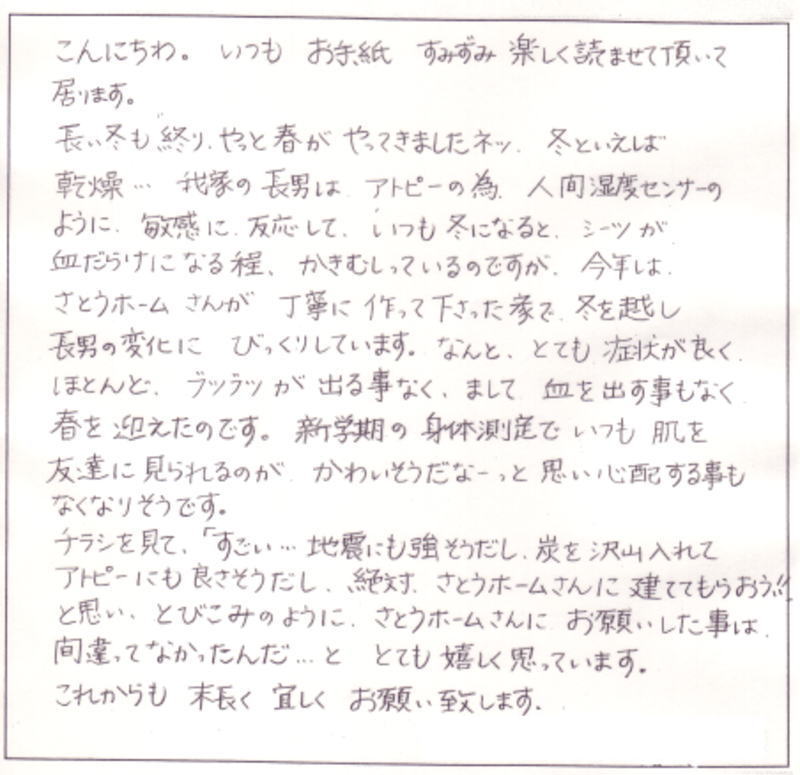 こんにちわ。 いつも お手紙 すみずみ 楽しく読ませて頂いて
居ります。
長い冬も終り、やっと春が やってきましたネッ、 冬といえば
乾燥… 我家の長男は、アトピーの為、人間湿度センサーの
ように、敏感に、反応して、いつも冬になると、シーツが
血だらけになる程、かきむしっているのですが、今年は、
さとうホームさんが 丁寧に作って下さった家で、冬を越し
長男の変化に びっくりしています。なんと、とても症状が良く、
ほとんど、ブツブツが出る事なく、まして 血を出す事もなく
春を迎えたのです。新学期の身体測定でいつも肌を
友達に見られるのが、かわいそうだなーっと思い心配する事も
なくなりそうです。
チラシを見て、「すごい…地震にも強そうだし、炭を沢山入れて
アトピーにも良さそうだし、絶対、さとうホームさんに建ててもらおう!!」
と思い、とびこみのように、さとうホームさんに お願いした事は、
間違ってなかったんだ…と とても嬉しく思っています。
これからも 末長く 宜しく お願い致します。